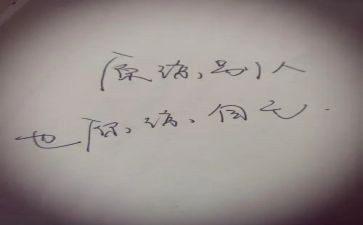 原谅,别人
也原谅,自己.